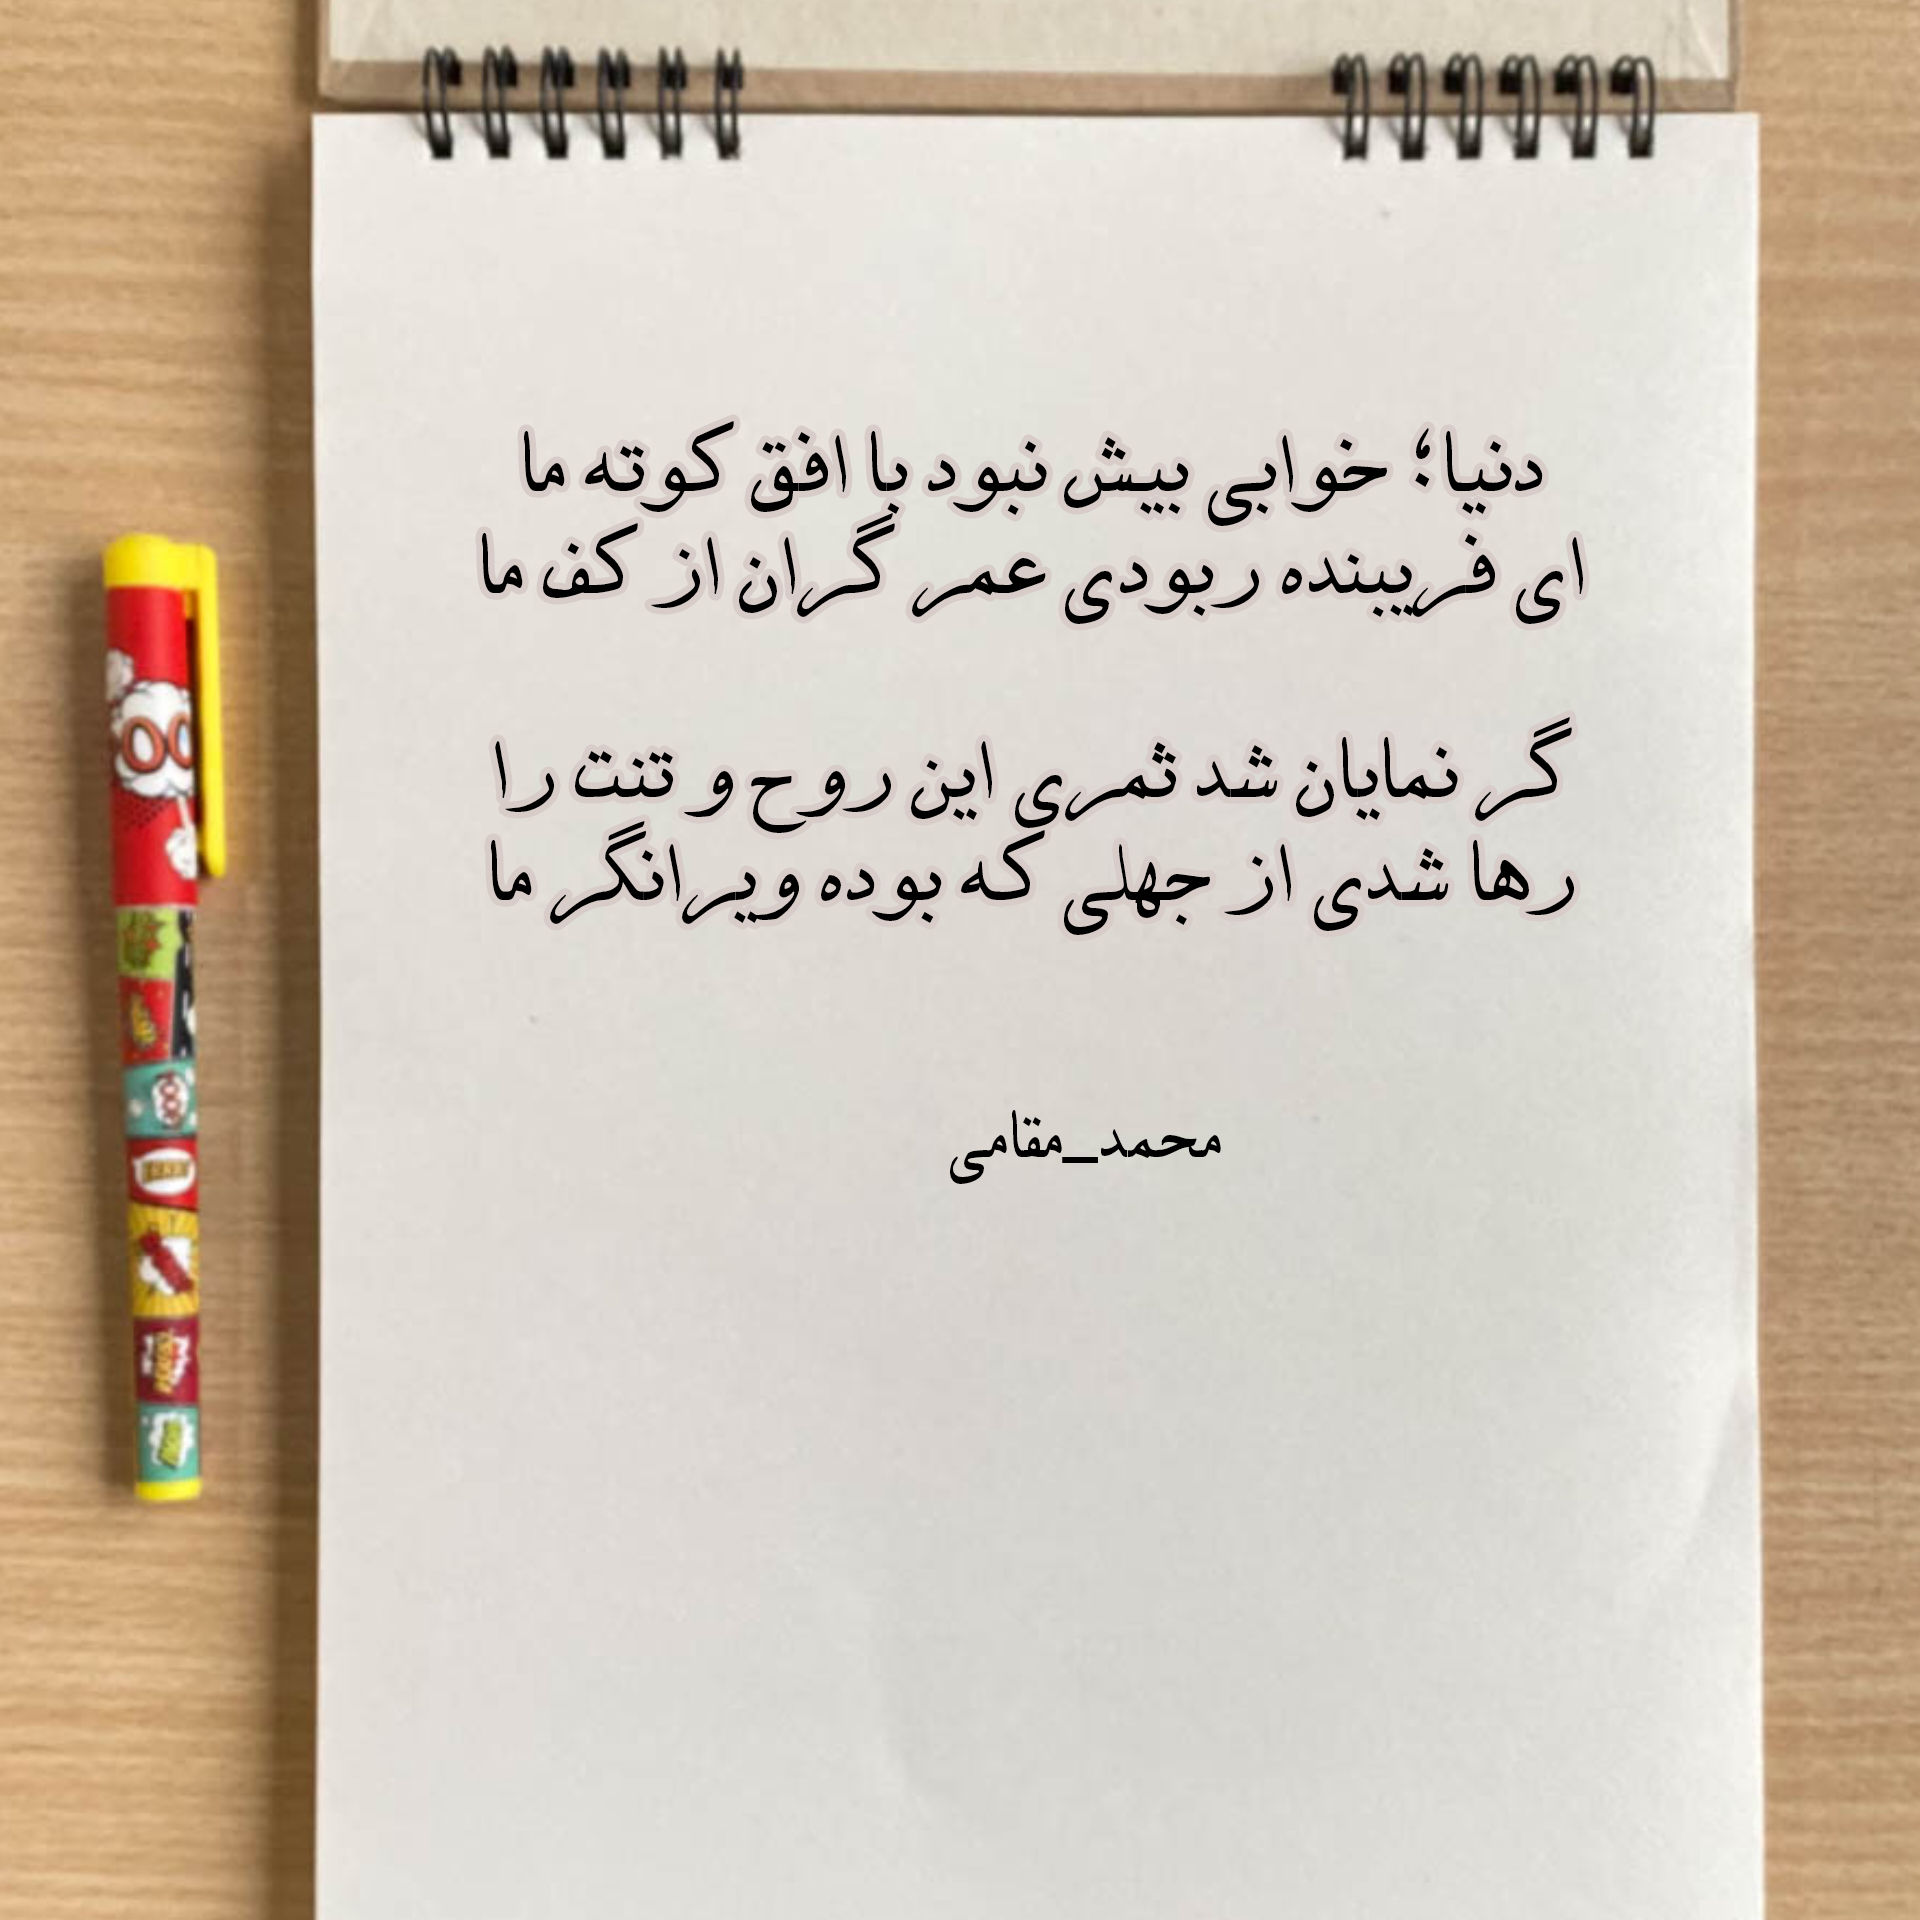 دنیا؛ خوابی بیش نبود با افق کوته ما
ای فریبنده ربودی عمر گران از کف ما
گر نمایان شد ثمری این روح و تنت را
رها شدی از جهلی که بوده ویرانگر ما
محمد_مقامی